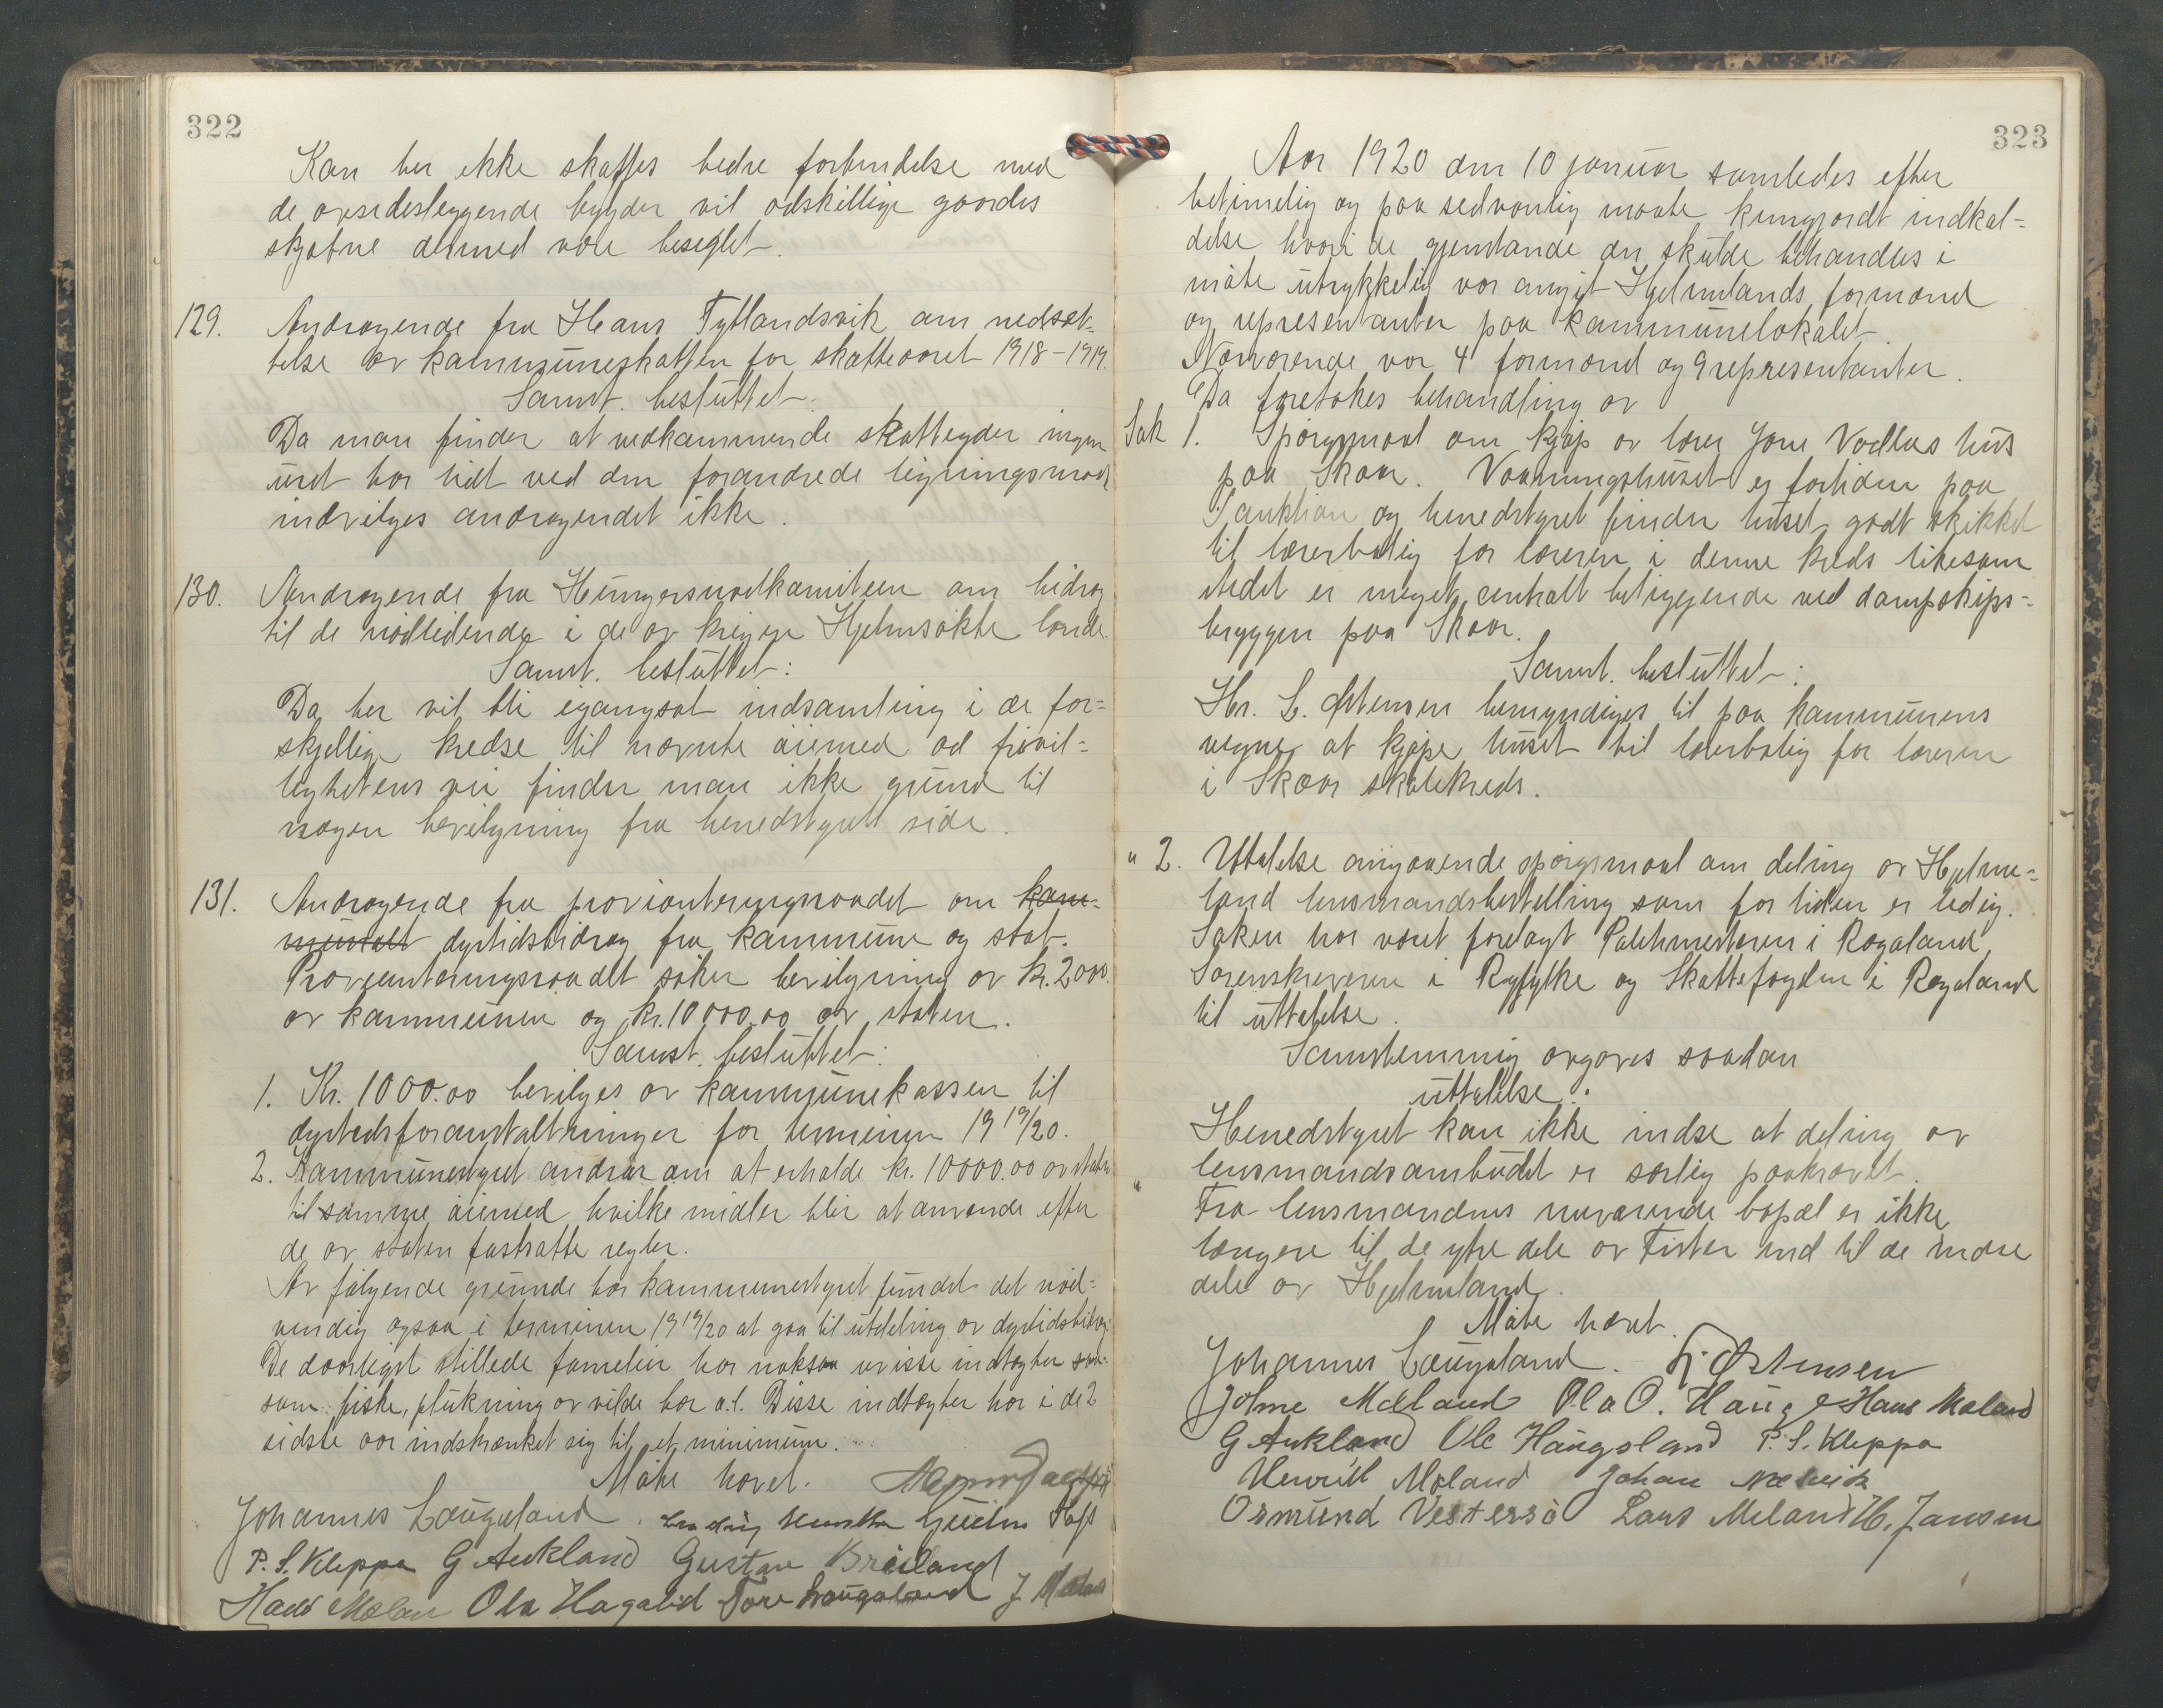 322
Kan her ikke skaffes bedre forbindelse med
de avsidesleggende bygder vil adskillige gaardes
skjæbne dermed være beseglet.
129. Andragende fra Hans Tytlandsvik om nedsæt-
telse av kommuneskatten for skatteaaret 1918-1919.
Samt. besluttet:
Da man finder at vedkommende skatteyder ingen
uret har lidt ved den forandrede ligningsmode
indvilges andragendet ikke.
130. Andragende fra Hungersnødkomiteen om bidrag
til de nødlidende i de av krigen hjemsøkte lande.
Samt. besluttet:
Da her vil bli igangsat indsamling i de for-
skjellige kredse til nævnte øiemed ad frivil-
lighetens vei finder man ikke grund til
nogen bevilgning fra herredstyret side.
131. Andragende fra provianteringsraadet om kom-
munalt dyrtidsbidrag fra kommune og stat.
Provianteringsraadet søker bevilgning av kr. 2000.
av kommunen og kr. 10000.00 av staten.
Samst. besluttet:
1. Kr. 1000.00 bevilges av kommunekassen til
dyrtidsforanstaltninger for terminen 1919/20.
2. Kommunestyret andrar om at erholde kr. 10000.00 av staten
til samme øiemed hvilke midler blir at anvende efter
de av staten fastsatte regler.
Av følgende grunde har kommunestyret fundet det nød-
vendig ogsaa i terminen 1919/20 at gaa til utdeling av dyrtidsbidrag:
De daarligst stillede familier har nokså visse indtægter saa-
som: fiske, plukning av vilde bær o.l. Disse indtægter har i de 2
sidste aar indskrænket sig til et minimum.
Møte hævet.
Johannes Laugaland
P. S. Kleppa G Aukland Gustav Breiland
Hans Mæland Ola Hagalid Tore Laugaland J Mæland
323
Aar 1920 den 10 januar samledes efter
betimelig og paa sedvanlig maate kungjordt indkal-
delse hvori de gjenstande der skulde behandles i
møte utrykkelig var angit Hjelmelands formænd
og representanter paa kommunelokalet.
Nærværende var 4 formænd og 9 representanter.
Da foretokes behandling av
Sak 1. Spørgsmaal om kjøp av lærer Jone Vadlas hus
paa Skaar. Vaaningshuset er fortiden paa
Sauktion og herredstyret finder huset godt skikket
til lærerbolig for læreren i denne kreds likesom
stedet er meget centralt beliggende ved dampskips-
bryggen paa Skaar.
Samt. besluttet:
Hr. L. Østensen bemyndiges til paa kommunens
vegner at kjøpe huset til lærerbolig for læreren
i Skaar skolekreds.
" 2. Uttalelse angaaende spørgsmaal om deling av Hjelme-
land lensmandsbestilling som for tiden er ledig.
Saken har været forelagt Politimesteren i Rogaland,
Sorenskriveren i Ryfylke og Skattefogden i Rogaland
til uttalelse.
Samstemmig avgaves saadan
uttalelse:
Herredstyret kan ikke indse at deling av
lensmandsombudet er særlig paakrævet.
" Fra lensmandens nuværende bopæl er ikke
længere til de ytre dele av Fister end til de indre
dele av Hjelmeland.
Møte hævet.
Johannes Laugaland. L. Østensen
Johne Mæland Ola O. Hauge Hans Mæland
G Aukland Ole Haugsland P. S. Kleppa
Henrik Mæland Johan Næsvik
Osmund Vestersø Lars Meland H. Jansen